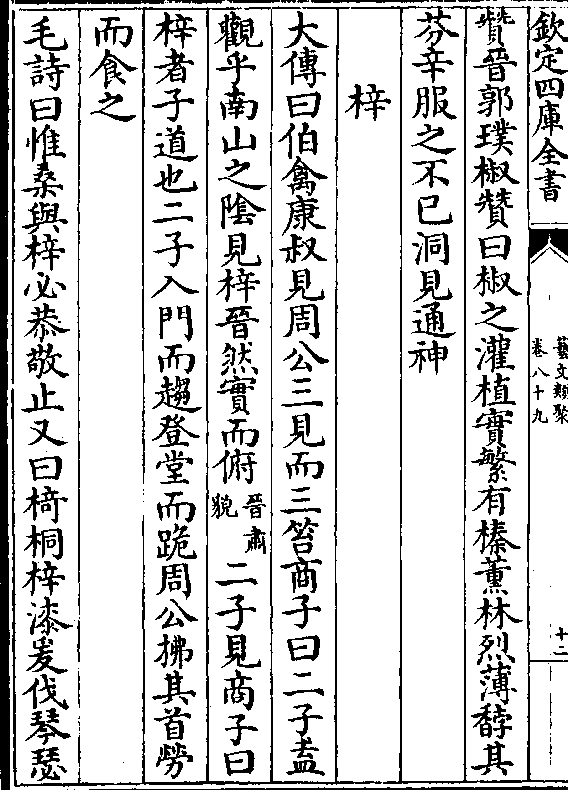 欽定四庫全書
藝文類聚
卷八十九
十二
贊晉郭璞椒贊曰椒之灌植實繁有榛薰林烈薄馞其
芬辛服之不已洞見通神
梓
大傳曰伯禽康叔見周公三見而三笞商子曰二子盍
觀乎南山之陰見梓晉然實而俯晉肅貌二子見商子曰
梓者子道也二子入門而趨登堂而跪周公拂其首勞
而食之
毛詩曰惟桑與梓必恭敬止又曰椅桐梓漆爰伐琴瑟